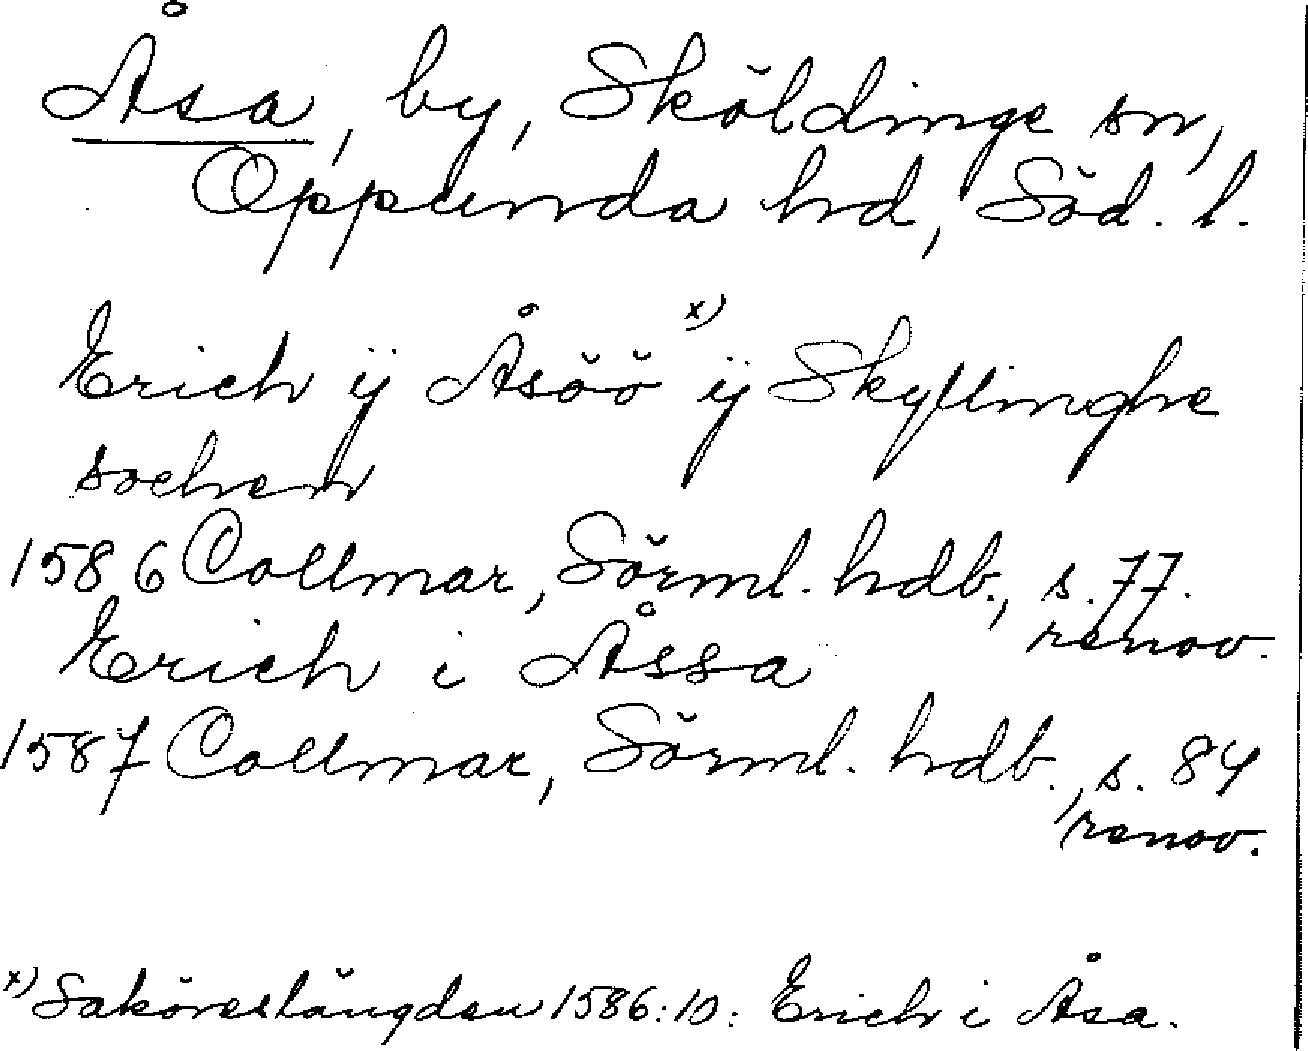 Åsa, by, Sköldinge sn,
Oppunda hd, Söd. l.
Erich ij Åsöö x) ij Skyllinghe
sochen
1586 Collmar, Sörml. hdb., s. 77.
renov.
Erich i Åssa
1587 Collmar, Sörml. hdb., s. 84
renov.
x) Saköreslängden 1586:10: Erich i Åsa.